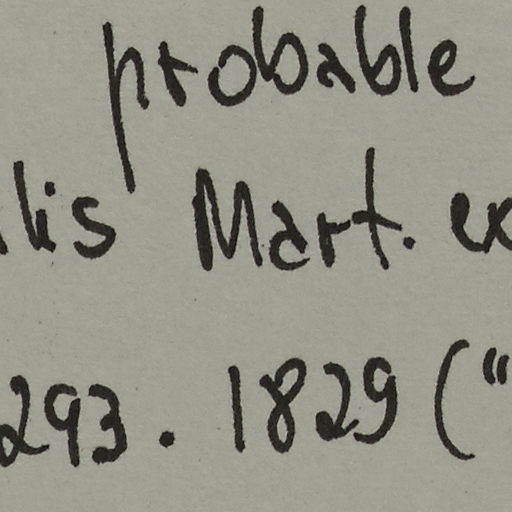 probable
lis Mart. ex
293. 1829 ("